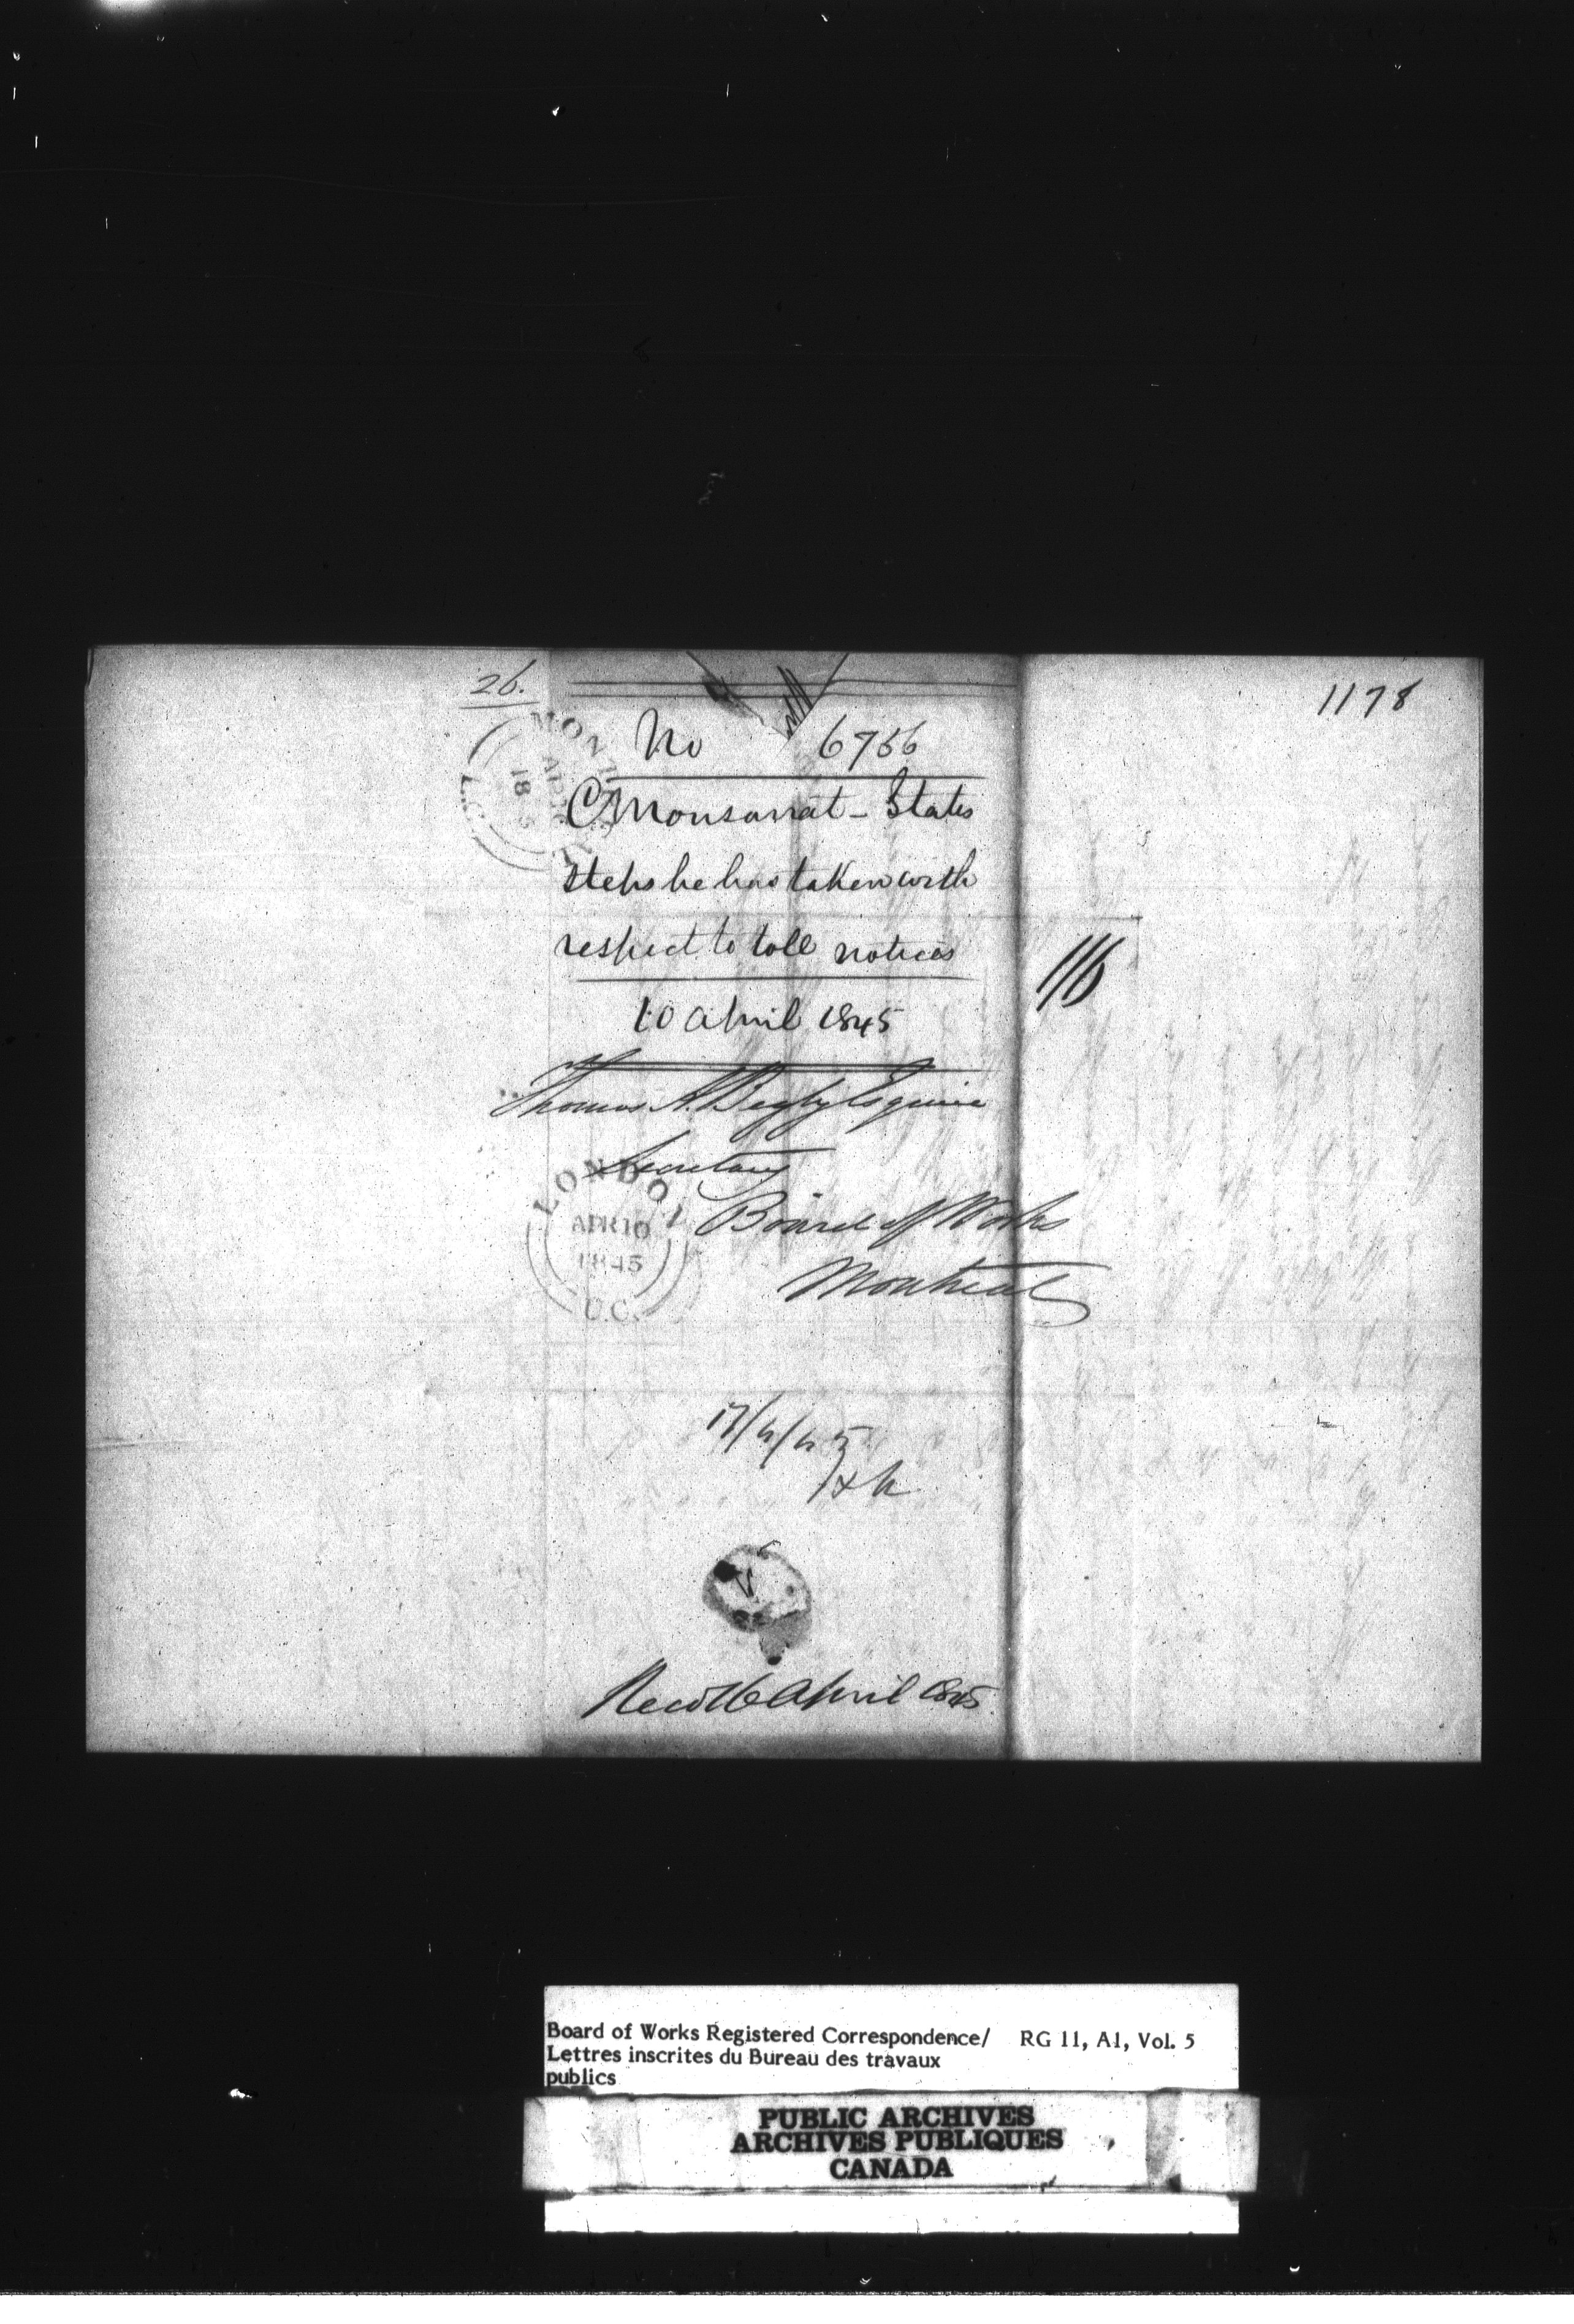 26.
1178
No 6756
C Monsarrat - States
steps he has taken with
respect to toll notices
1/6
10 April 1845
Thomas A. Begly Esquire
Secretary
Board of Works
Montreal
LONDON
APR 10
1845
U.C.
17/4/45
Recd 16 April 1845
Board of Works Registered Correspondence/ RG 11, A1, Vol. 5
Lettres inscrites du Bureau des travaux
publics
PUBLIC ARCHIVES
ARCHIVES PUBLIQUES
CANADA